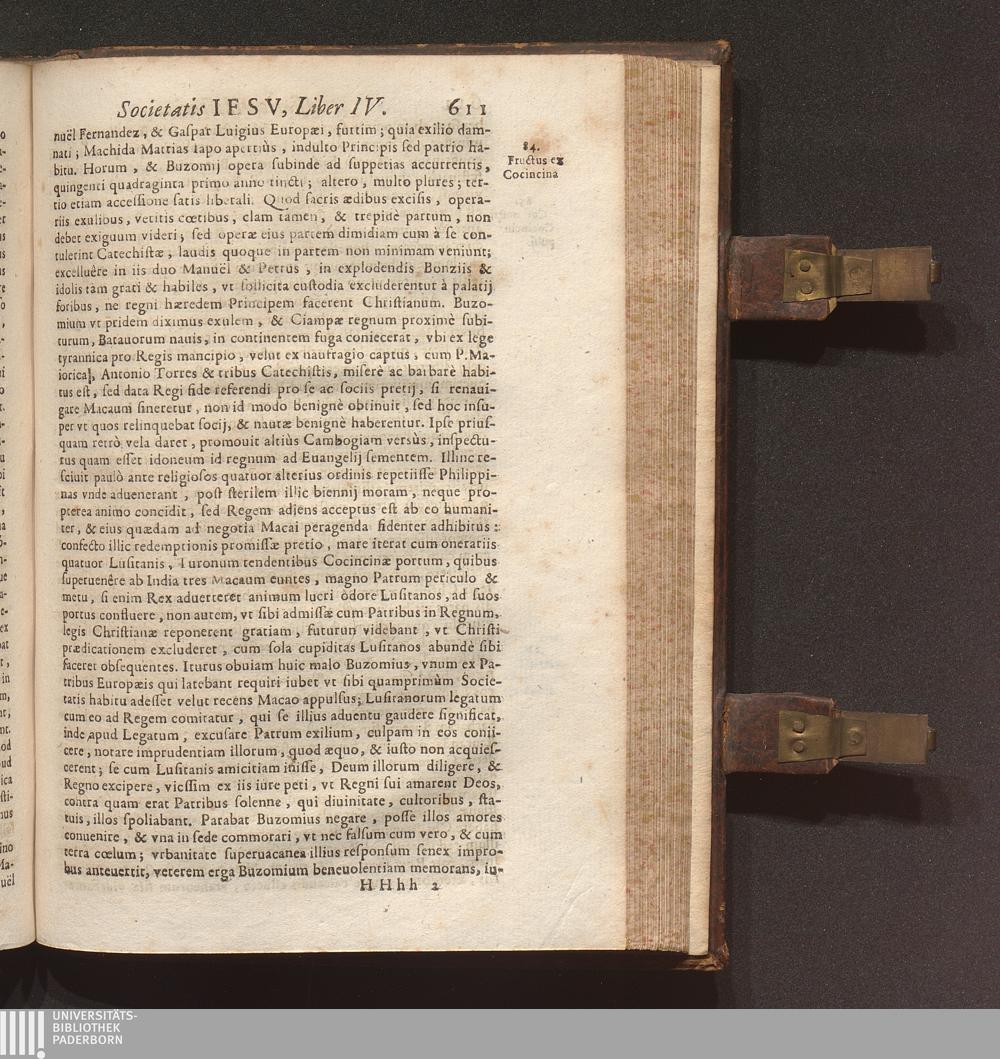 Societatis IESV, Liber IV. 611
nuël Fernandez, & Gaſpar Luigius Europæi, furtim; quia exilio dam-
nati; Machida Mattias Iapo apertiùs, indulto Principis ſed patrio ha-
bitu. Horum, & Buzomij opera ſubinde ad ſuppetias accurrentis,
quingenti quadraginta primo anno tincti; altero, multo plures; ter-
tio etiam acceſſione ſatis liberali. Quod ſacris ædibus exciſis, opera-
riis exulibus, vetitis cœtibus, clam tamen, & trepidè partum, non
debet exiguum videri; ſed operæ eius partem dimidiam cum à ſe con-
tulerint Catechiſtæ, laudis quoque in partem non minimam veniunt;
excelluêre in iis duo Manuël & Petrus, in explodendis Bonziis &
idolis tam grati & habiles, vt ſollicita cuſtodia excluderentur à palatij
foribus, ne regni hæredem Principem facerent Chriſtianum. Buzo-
mium vt pridem diximus exulem, & Ciampæ regnum proximè ſubi-
turum, Batauorum nauis, in continentem fuga coniecerat, vbi ex lege
tyrannica pro Regis mancipio, velut ex naufragio captus, cum P. Ma-
iorica, Antonio Torres & tribus Catechiſtis, miſerè ac barbarè habi-
tus eſt, ſed data Regi fide referendi pro ſe ac ſociis pretij, ſi renaui-
gare Macaum ſineretur, non id modo benignè obtinuit, ſed hoc inſu-
per vt quos relinquebat ſocij, & nautæ benignè haberentur. Ipſe priuſ-
quam retrò vela daret, promouit altiùs Cambogiam versùs, inſpectu-
rus quam eſſet idoneum id regnum ad Euangelij ſementem. Illinc re-
ſciuit paulò ante religioſos quatuor alterius ordinis repetiiſſe Philippi-
nas vnde aduenerant, poſt ſterilem illic biennij moram, neque pro-
pterea animo concidit, ſed Regem adiens acceptus eſt ab eo humani-
ter, & eius quædam ad negotia Macai peragenda fidenter adhibitus:
confecto illic redemptionis promiſſæ pretio, mare iterat cum onerariis
quatuor Luſitanis, Turonum tendentibus Cocincinæ portum, quibus
ſuperuenêre ab India tres Macaum euntes, magno Patrum periculo &
metu, ſi enim Rex aduerteret animum lucri odore Luſitanos, ad ſuos
portus confluere, non autem, vt ſibi admiſſæ cum Patribus in Regnum,
legis Chriſtianæ reponerent gratiam, futurun videbant, vt Chriſti
prædicationem excluderet, cum ſola cupiditas Luſitanos abundè ſibi
faceret obſequentes. Iturus obuiam huic malo Buzomius, vnum ex Pa-
tribus Europæis qui latebant requiri iubet vt ſibi quamprimùm Socie-
tatis habitu adeſſet velut recens Macao appulſus; Luſitanorum legatum
cum eo ad Regem comitatur, qui ſe illius aduentu gaudere ſignificat,
inde apud Legatum, excuſare Patrum exilium, culpam in eos coniì-
cere, notare imprudentiam illorum, quod æquo, & iuſto non acquieſ-
cerent; ſe cum Luſitanis amicitiam iniſſe, Deum illorum diligere, &
Regno excipere, viciſſim ex iis iure peti, vt Regni ſui amarent Deos,
contra quam erat Patribus ſolenne, qui diuinitate, cultoribus, ſta-
tuis, illos ſpoliabant. Parabat Buzomius negare, poſſe illos amores
conuenire, & vna in ſede commorari, vt nec falſum cum vero, & cum
terra cœlum; vrbanitate ſuperuacanea illius reſponſum ſenex impro-
bus anteuertit, veterem erga Buzomium beneuolentiam memorans, iu-
HHhh 2
84.
Fructus ex
Cocincina
UNIVERSITÄTS-
BIBLIOTHEK
PADERBORN